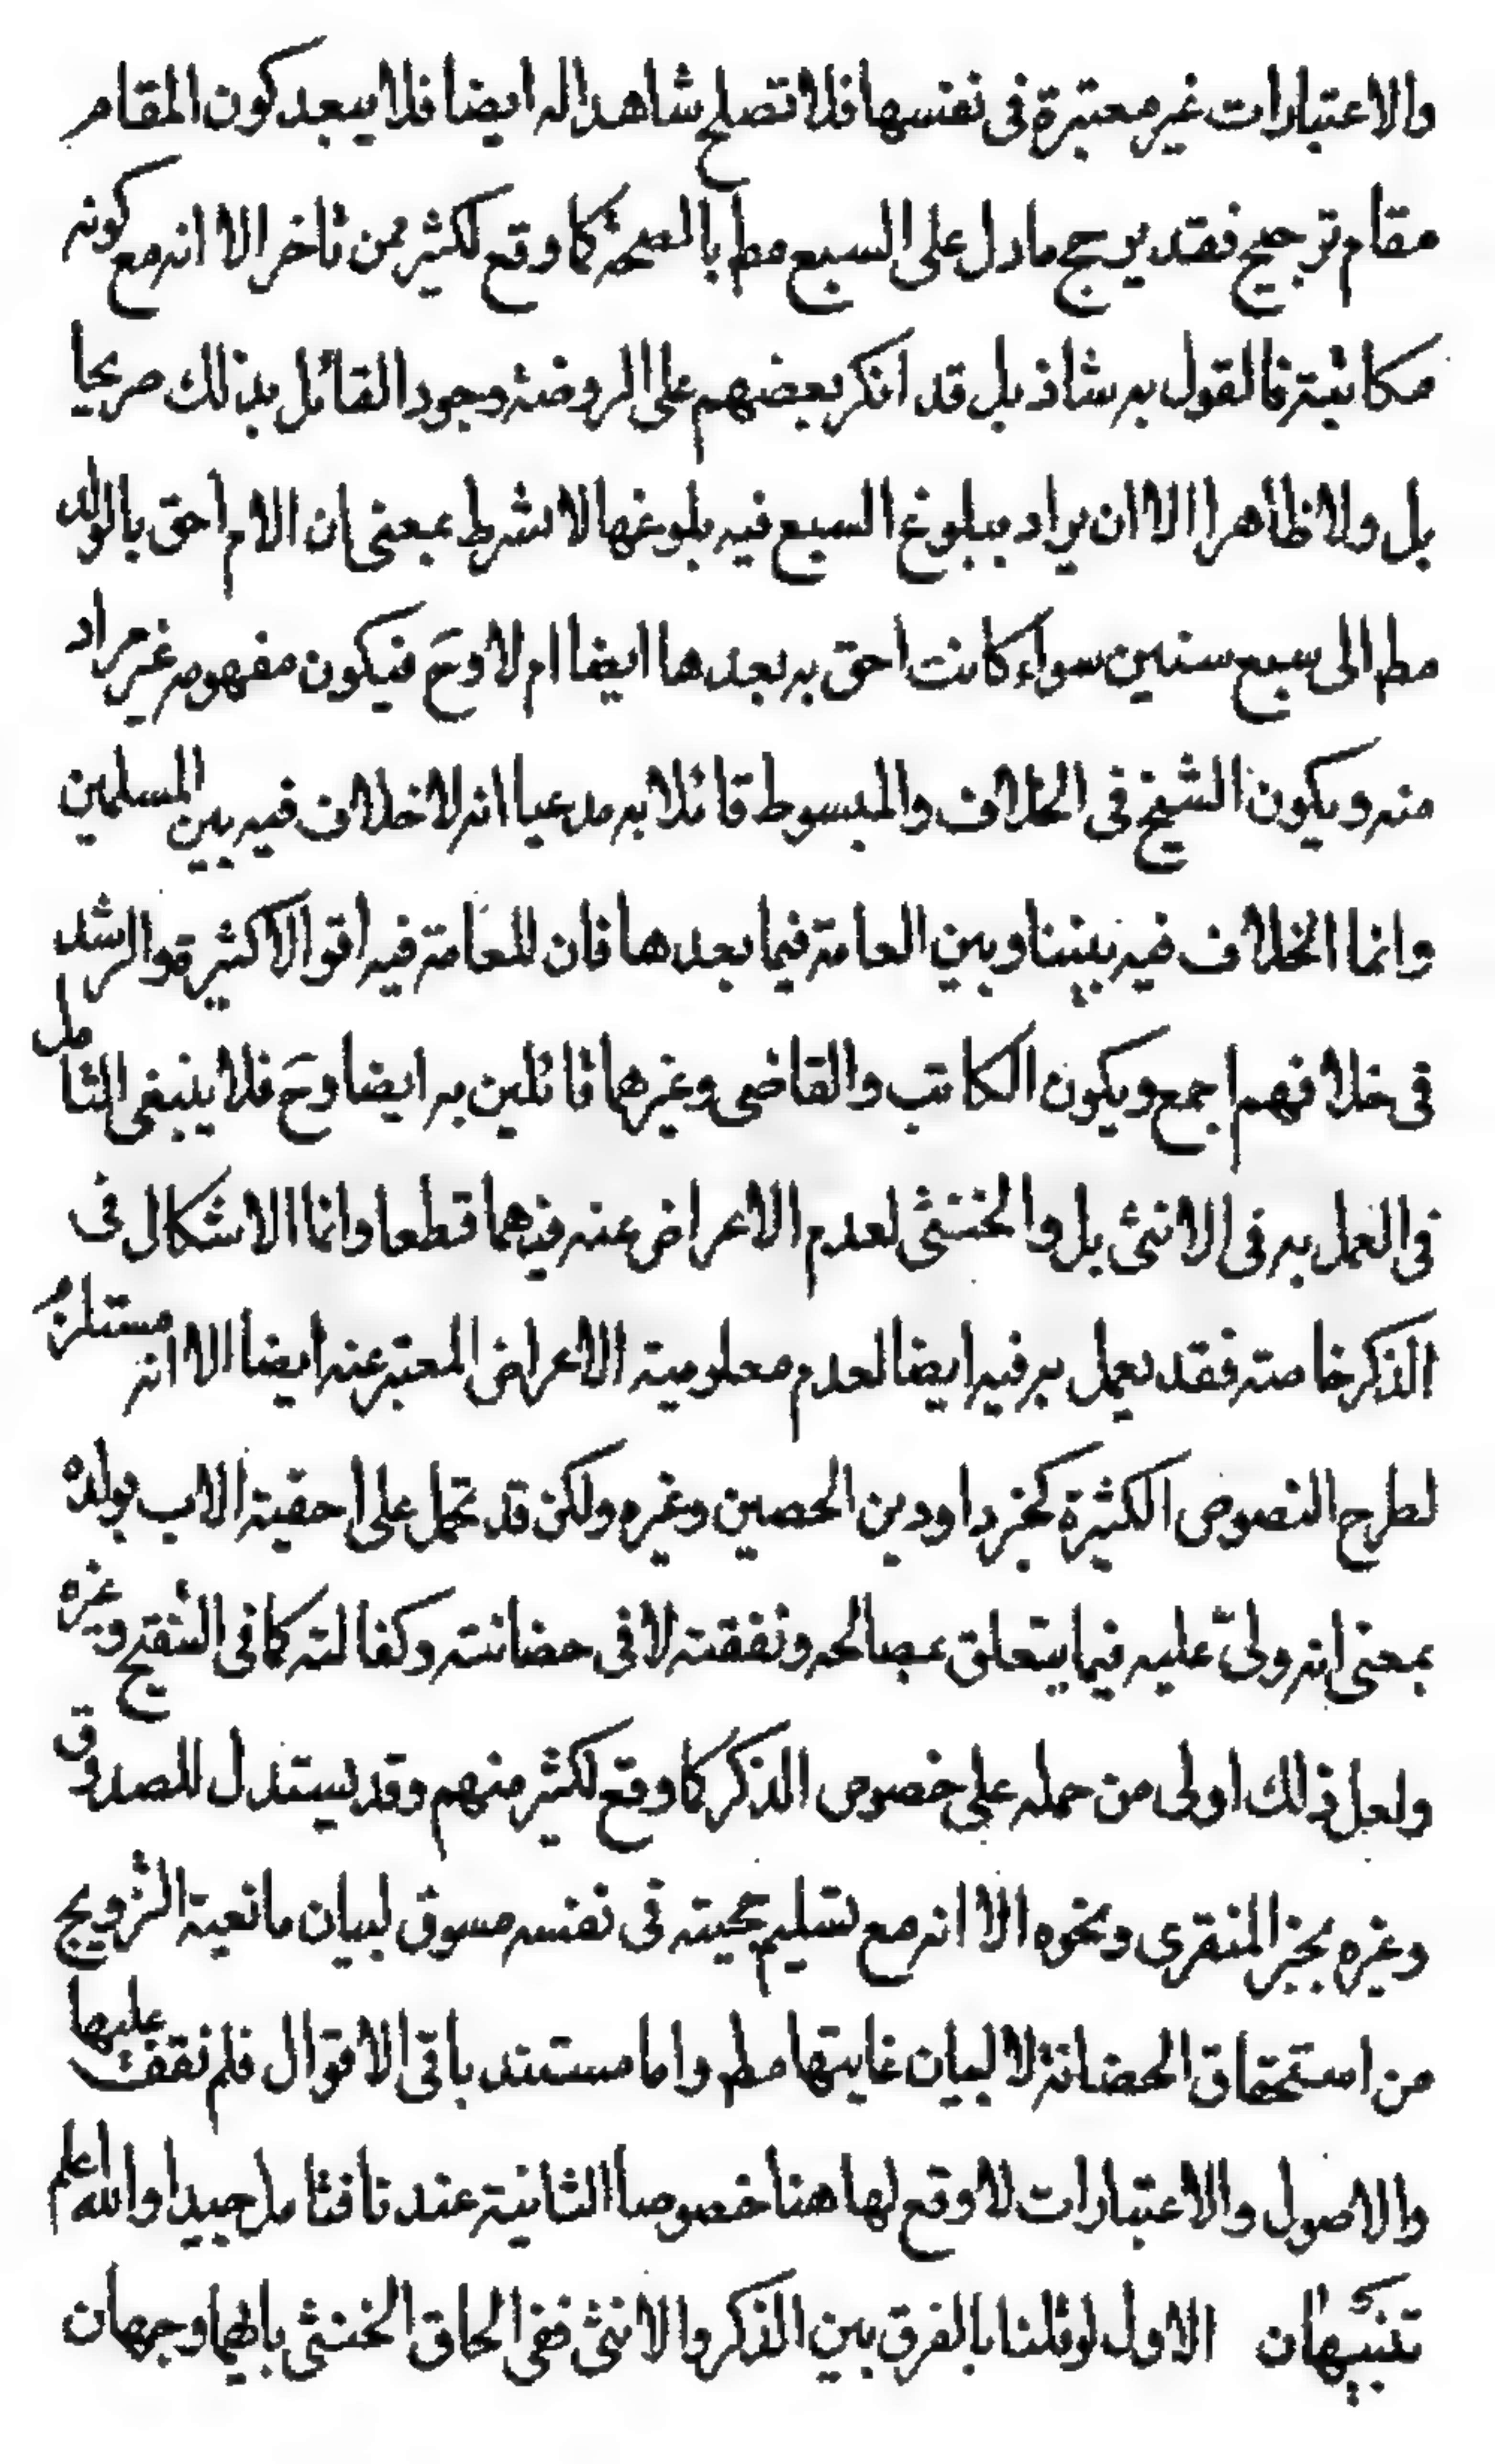 والاعتبارات غير معتبرة فى نفسها فلا تصلح شاهدا له ايضا فلا يبعد كون المقام
مقام ترجيح فقد يرجح مادل على السبع مط بالصحة كما وقع لكثير ممن تاخر الا انه مع كونه
مكاتبة فالقول به شاذ بل قد انكر بعضهم على الروضة وجود القائل بذلك صريحا
بل ولا ظاهرا الا ان يراد ببلوغ السبع فيه بلوغها لا بشرط بمعنى ان الام احق بالولد
مط الى سبع سنين سواء كانت احق به بعدها ايضا ام لا وح فيكون مفهومه غير مراد
منه ويكون الشيخ فى الخلاف والمبسوط قائلا به مدعيا انه لا خلاف فيه بين المسلمين
وانما الخلاف فيه بيننا وبين العامة فيما بعدها فان للعامة فيه اقوالا كثيرة والرشد
فى خلافهم اجمع ويكون الكاتب والقاضى وغيرهما قائلين به ايضا وح فلا ينبغى التامل
فى العمل به فى الانثى بل والخنثى لعدم الاعراض عنه فيهما قطعا وانما الاشكال فى
الذكر خاصة فقد يعمل به فيه ايضا لعدم معلومية الاعراض المعتبر عنه ايضا الا انه مستلزم
لطرح النصوص الكثيرة كخبر داود بن الحصين وغيره ولكن قد تحمل على احقية الاب بولده
بمعنى انه ولىّ عليه فيما يتعلق بمصالحه ونفقته لا فى حضانته وكفالته كما فى التنقيح وغيره
ولعل ذلك اولى من حمله على خصوص الذكر كما وقع لكثير منهم وقد يستدل للصدوق
وغيره بخبر المنقرى ونحوه الا انه مع تسليم حجيته فى نفسه مسوق لبيان مانعية التزويج
من استحقاق الحضانة لا لبيان غايتها مط واما مستند باقى الاقوال فلم نقف عليها
والاصول والاعتبارات لا وقع لها هنا خصوصا الثانية عندنا فتامل جيدا والله اعلم
تنبيهان الاول لو قلنا بالفرق بين الذكر والانثى ففى الحاق الخنثى بايهما وجهان